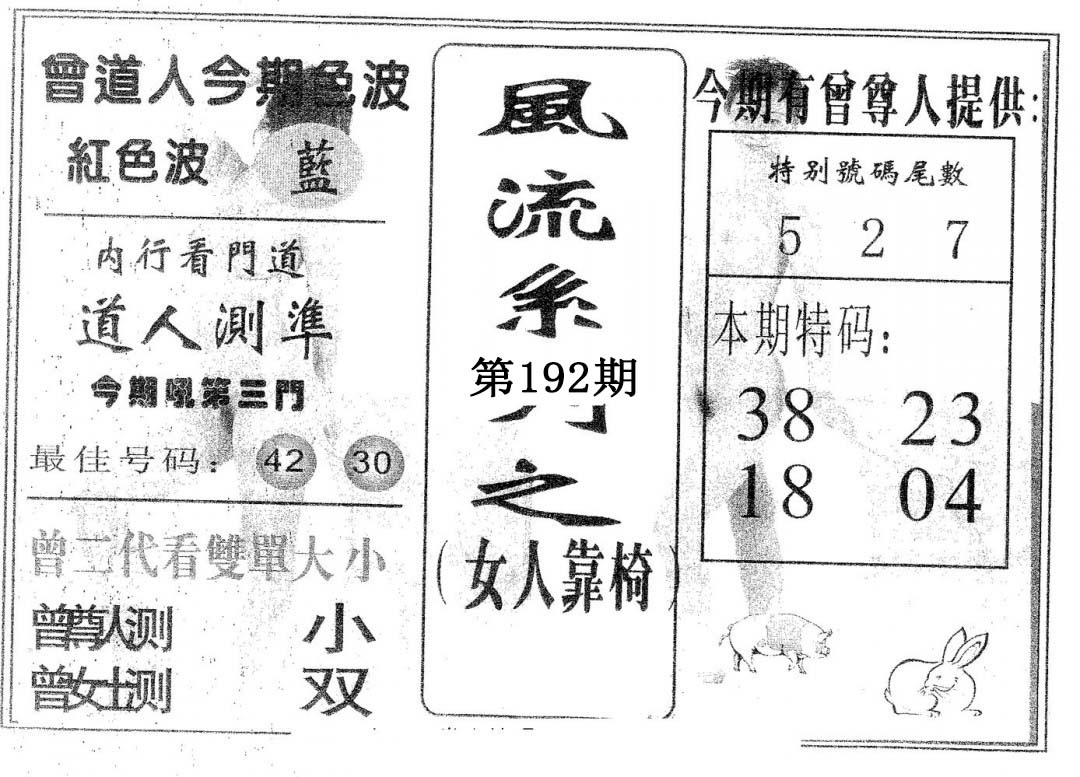 曾道人今期色波
紅色波
藍
内行看門道
道人測準
今期吼第三門
最佳号码：
42
30
曾二代看雙單大小
曾尊人测 小
曾女士测 双
風
流
系
第192期
列
之
(女人靠椅)
今期有曾尊人提供:
特别號碼尾數
5 2 7
本期特码:
38 23
18 04